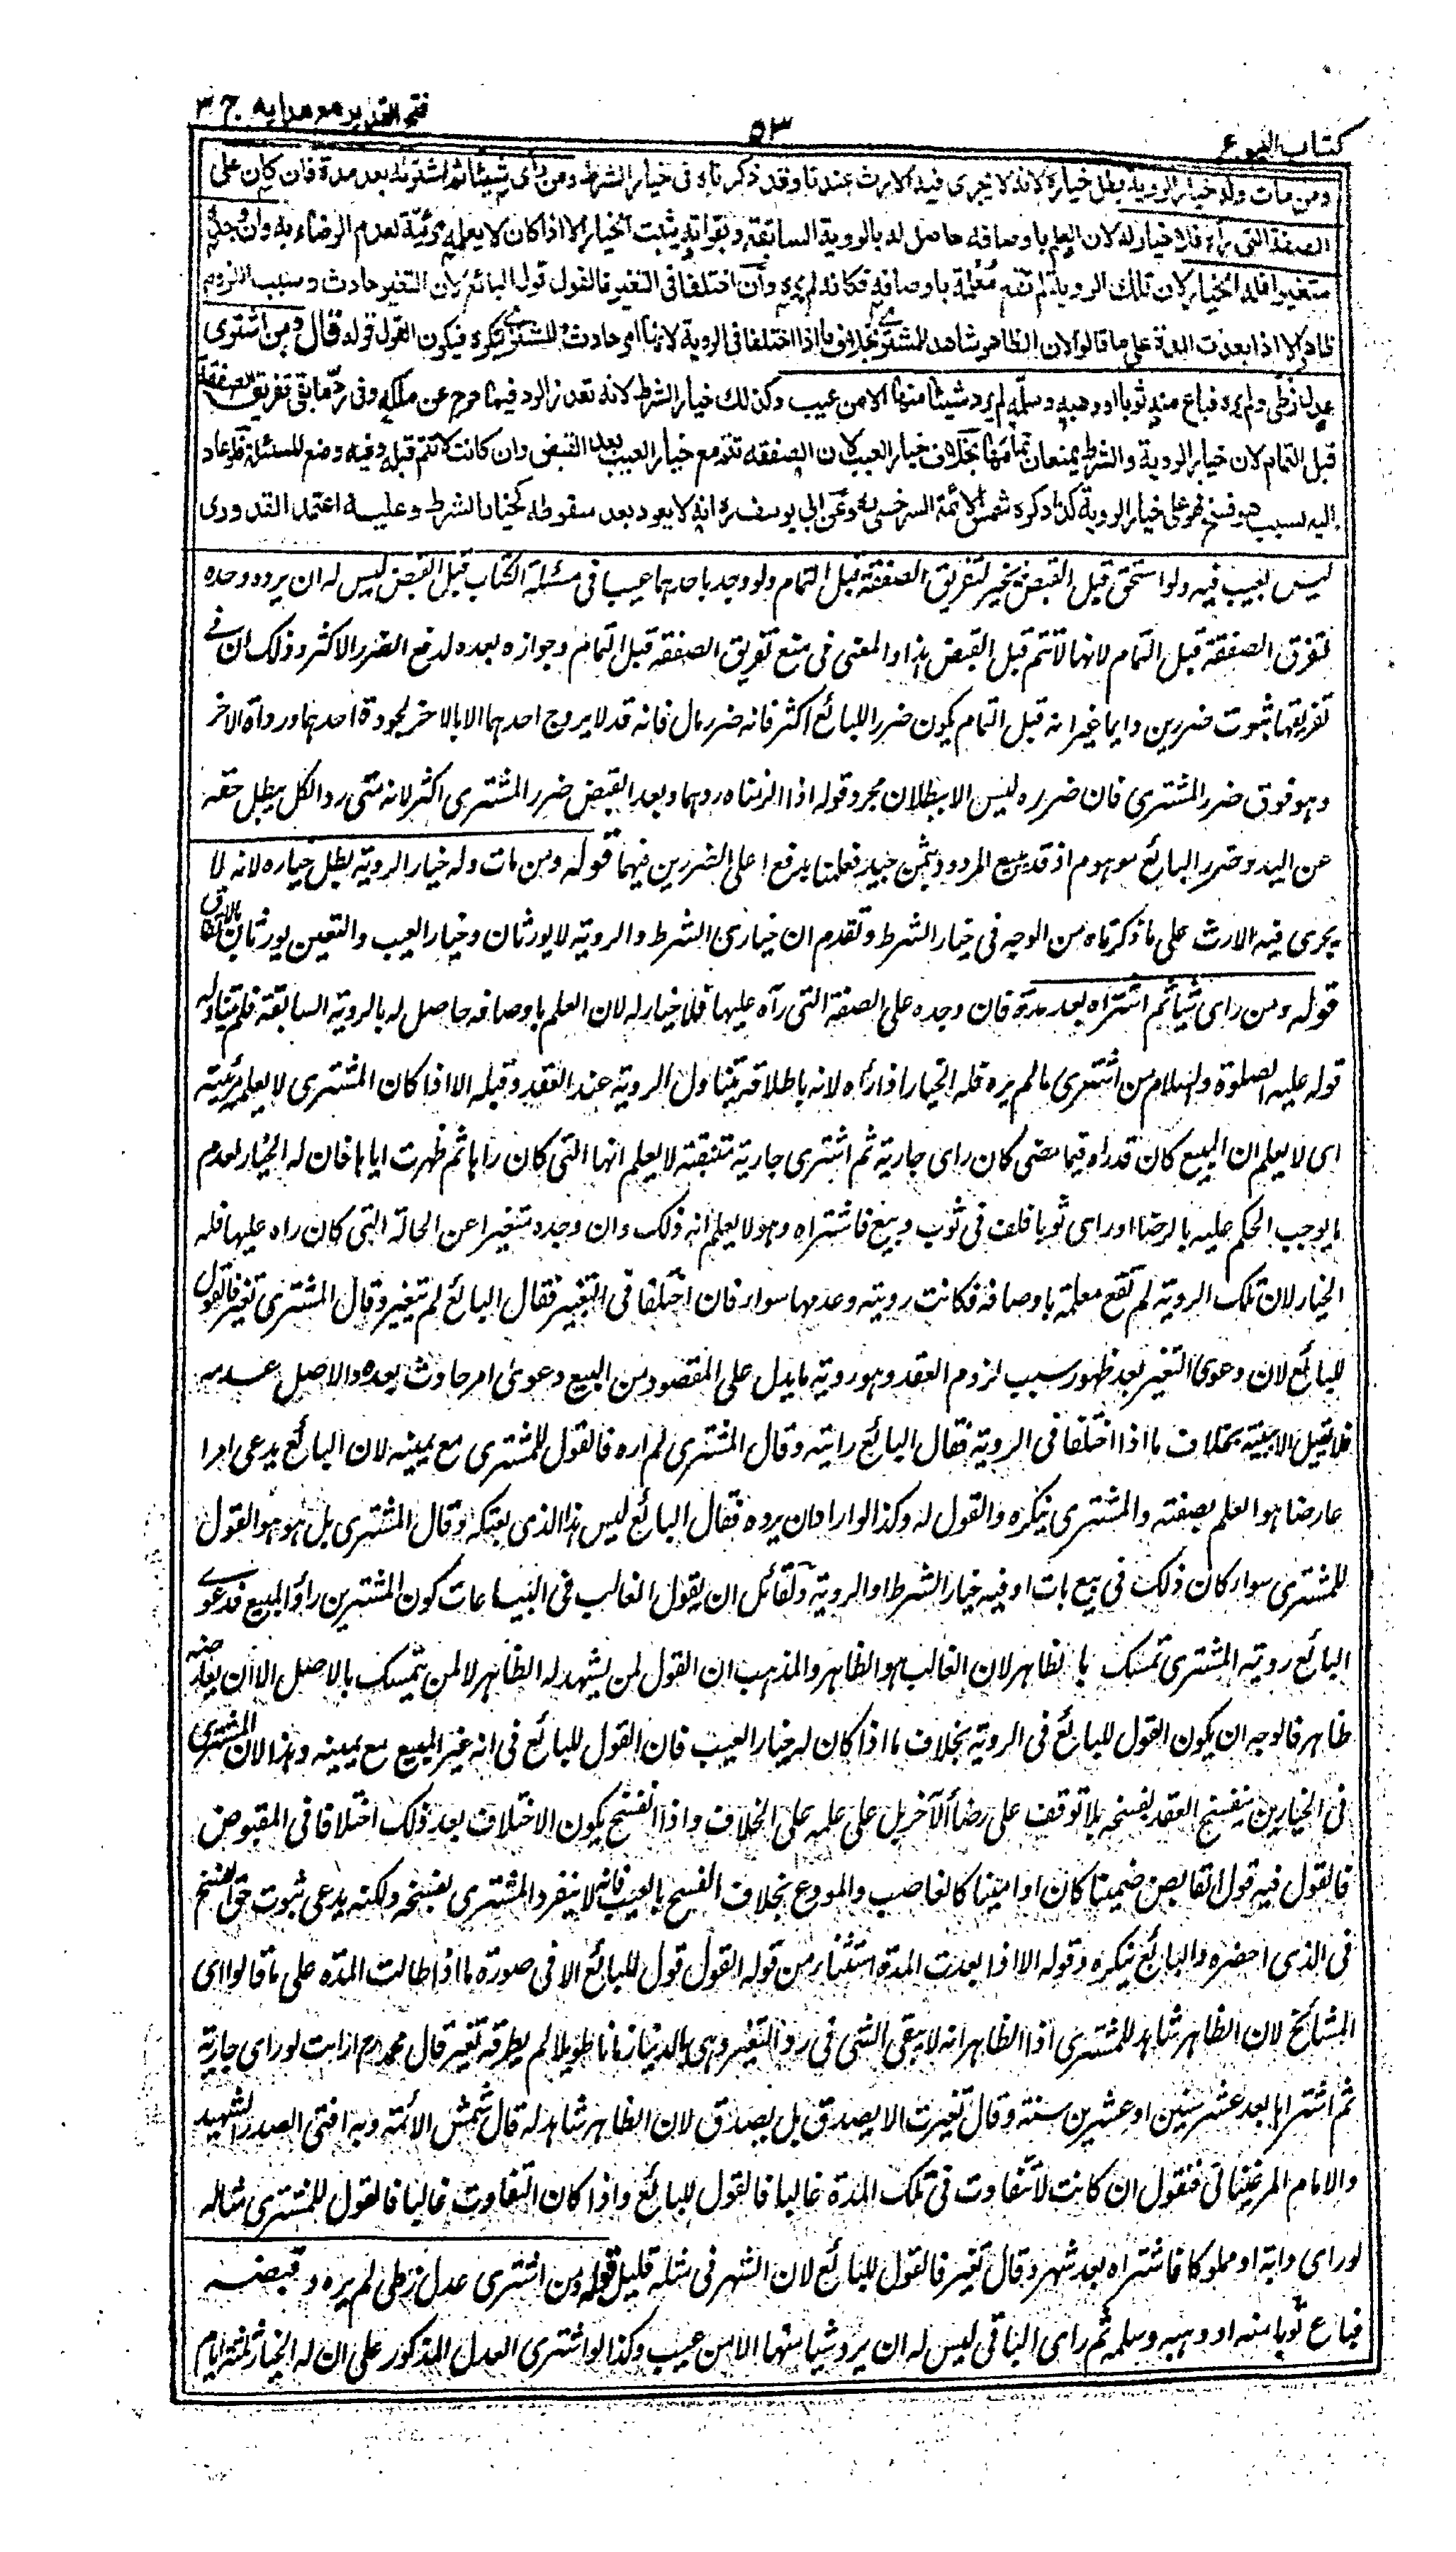 فتح القدير مع هدايه ج ٣
٥٣
كتاب البيوع
ومن مات وله خيار الروية بطل خياره لانه لا يجرى فيه الارث عندنا وقد ذكرناه فى خيار الشرط ومن رأى شيئا ثم اشتراه بعد مدة فان كان على
الصفة التى راه فلا خيار له لان العلم باوصافه حاصل له بالروية السابقة وبفواته يثبت الخيار الا اذا كان لا يعلمه مرئيه لعدم الرضاء به وان وجده
متغيرا فله الخيار لان تلك الروية لم تقع معلمة باوصافه فكانه لم يره وان اختلفا فى التغير فالقول قول البائع لان التغير حادث وسبب اللزوم
ظاهر الا اذا بعدت المدة على ما قالوا لان الظاهر شاهد للمشترى بخلاف ما اذا اختلفا فى الروية لانها امر حادث والمشترى ينكره فيكون القول قوله قال ومن اشترى
عدل زطى ولم يره فباع منه ثوبا او وهبه وسلمه لم يرد شيئا منها الا من عيب وكذلك خيار الشرط لانه تعذر الرد فيما خرج عن ملكه وفى رد ما بقى تفريق الصفقة
قبل التمام لان خيار الروية والشرط يمنعان تمامها بخلاف خيار العيب لان الصفقه تتم مع خيار العيب بعد القبض وان كانت لا تتم قبله وفيه وضع المسئلة فلو عاد
اليه بسبب هو فسخ فهو على خيار الروية كذا ذكره شمس الائمة السرخسى ره وعن ابى يوسف ره انه لا يعود بعد سقوطه كخيار الشرط وعليه اعتمد القدورى
ليس بعيب فيه ولو استحق قبل القبض يخير لتفريق الصفقة قبل التمام ولو وجد باحدهما عيبا فى مسئلة الكتاب قبل القبض ليس له ان يرده وحده
لتفرق الصفقة قبل التمام لانها لا تتم قبل القبض هذا والمعنى فى منع تفريق الصفقة قبل التمام وجوازه بعده لدفع الضرر الاكثر وذلك ان فى
تفريقها ثبوت ضررين دايما غير انه قبل التمام يكون ضرر البائع اكثر فانه ضرر مال فانه قد لا يروج احدهما الا بالاخر لجودة احدهما ورداة الاخر
وهو فوق ضرر المشترى فان ضرره ليس الا بطلان مجرد قوله اذا الزمناه ردهما وبعد القبض ضرر المشترى اكثر لانه متى رد الكل يبطل حقه
عن اليد وضرر البائع موهوم اذ قد يبيع المردود بثمن جيد فعلمنا بدفع اعلى الضررين فيهما قوله ومن مات وله خيار الروية بطل خياره لانه لا
يجرى فيه الارث على ما ذكرناه من الوجه فى خيار الشرط وتقدم ان خيارى الشرط والروية لا يورثان وخيار العيب والتعين يورثان بالاتفاق
قوله ومن راى شيأ ثم اشتراه بعد مدة فان وجده على الصفة التى رآه عليها فلا خيار له لان العلم باوصافه حاصل له بالروية السابقة فلم يتناوله
قوله عليه الصلوة والسلام من اشترى ما لم يره فله الخيار اذا رآه لانه باطلاقه يتناول الروية عند العقد وقبله الا اذا كان المشترى لا يعلمه مرئيه
اى لا يعلم ان المبيع كان قد راه فيما مضى كان راى جارية ثم اشترى جارية متنقبة لا يعلم انها التى كان راها ثم ظهرت اياها فان له الخيار لعدم
ما يوجب الحكم عليه بالرضا او راى ثوبا فلف فى ثوب وبيع فاشتراه وهو لا يعلم انه ذلك وان وجده متغيرا عن الحالة التى كان راه عليها فله
الخيار لان تلك الروية لم تقع معلمة باوصافه فكانت رويته وعدمها سواء فان اختلفا فى التغير فقال البائع لم يتغير وقال المشترى تغير فالقول
للبائع لان دعوى التغير بعد ظهور سبب لزوم العقد وهو روية ما يدل على المقصود من المبيع دعوى امر حادث بعده والاصل عدمه
فلا تقبل الا ببينة بخلاف ما اذا اختلفا فى الروية فقال البائع رايته وقال المشترى لم اره فالقول للمشترى مع يمينه لان البائع يدعى امرا
عارضا هو العلم بصفته والمشترى ينكره والقول له وكذا لو اراد ان يرده فقال البائع ليس هذا الذى بعتكه وقال المشترى بل هو هو القول
للمشترى سواء كان ذلك فى بيع بات او فيه خيار الشرط او الروية ولقائل ان يقول الغالب فى البياعات كون المشترين راوا المبيع فدعوى
البائع روية المشترى تمسك بالظاهر لان الغالب هو الظاهر والمذهب ان القول لمن يشهد له الظاهر لا لمن يتمسك بالاصل الا ان يعارضه
ظاهر فالوجه ان يكون القول للبائع فى الروية بخلاف ما اذا كان له خيار العيب فان القول للبائع فى انه غير المبيع مع يمينه وهذا لان المشترى
فى الخيارين ينفسخ العقد بفسخه بلا توقف على رضا الآخر بل على علمه على الخلاف واذا انفسخ يكون الاختلاف بعد ذلك اختلافا فى المقبوض
فالقول فيه قول القابض ضمينا كان او امينا كالغاصب والمودع بخلاف الفسخ بالعيب فانه لا ينفرد المشترى بفسخه ولكنه يدعى ثبوت حق الفسخ
فى الذى احضره والبائع ينكره وقوله الا اذا بعدت المدة استثناء من قوله القول قول للبائع الا فى صورة ما اذا طالت المدة على ما قالوا اى
المشائخ لان الظاهر شاهد للمشترى اذ الظاهر انه لا يبقى الشئ فى دار التغير وهى الدنيا زمانا طويلا لم يطرقه تغير قال محمد رح ارايت لو راى جارية
ثم اشتراها بعد عشر سنين او عشرين سنة وقال تغيرت الا يصدق بل يصدق لان الظاهر شاهد له قال شمس الائمة وبه افتى الصدر الشهيد
والامام المرغينانى فنقول ان كانت لا تتفاوت فى تلك المدة غالبا فالقول للبائع واذا كان التفاوت غالبا فالقول للمشترى مثاله
لو راى دابة او مملوكا فاشتراه بعد شهر وقال تغير فالقول للبائع لان الشهر فى مثله قليل قوله ومن اشترى عدل زطى لم يره وقبضه
فباع ثوبا منه او وهبه وسلمه ثم راى الباقى ليس له ان يرد شيا منها الا من عيب وكذا لو اشترى العدل المذكور على ان له الخيار ثلثة ايام